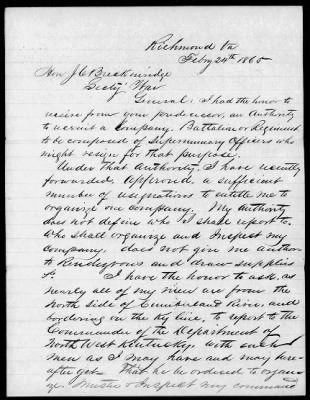 Richmond Va
Febry 24th 1865
Hon J C Breckinridge
Secty War
General: I had the honor to
receive from your predecessor, an Authority
to recruit a Company, Battalion or Regiment
to be composed of Supernumary Officers who
might resign for that purpose.
Under that Authority, I have recently
forwarded Approved, a sufficient
number of resignations to entitle me to
organize one company. My Authority
does not define who I shall report to.
Who shall organize and Inspect my
Company. does not give me author
to Rendezvous and draw supplies
&c. I have the honor to ask, as
nearly all of my men are from the
North side of Cumberland River. and
bordering on the Ky line, to report to the
Commander of the Department of
North West Kentucky. with such
men as I may have and may here-
after get- That he be ordered to organ-
ize. Muster & Inspect my command